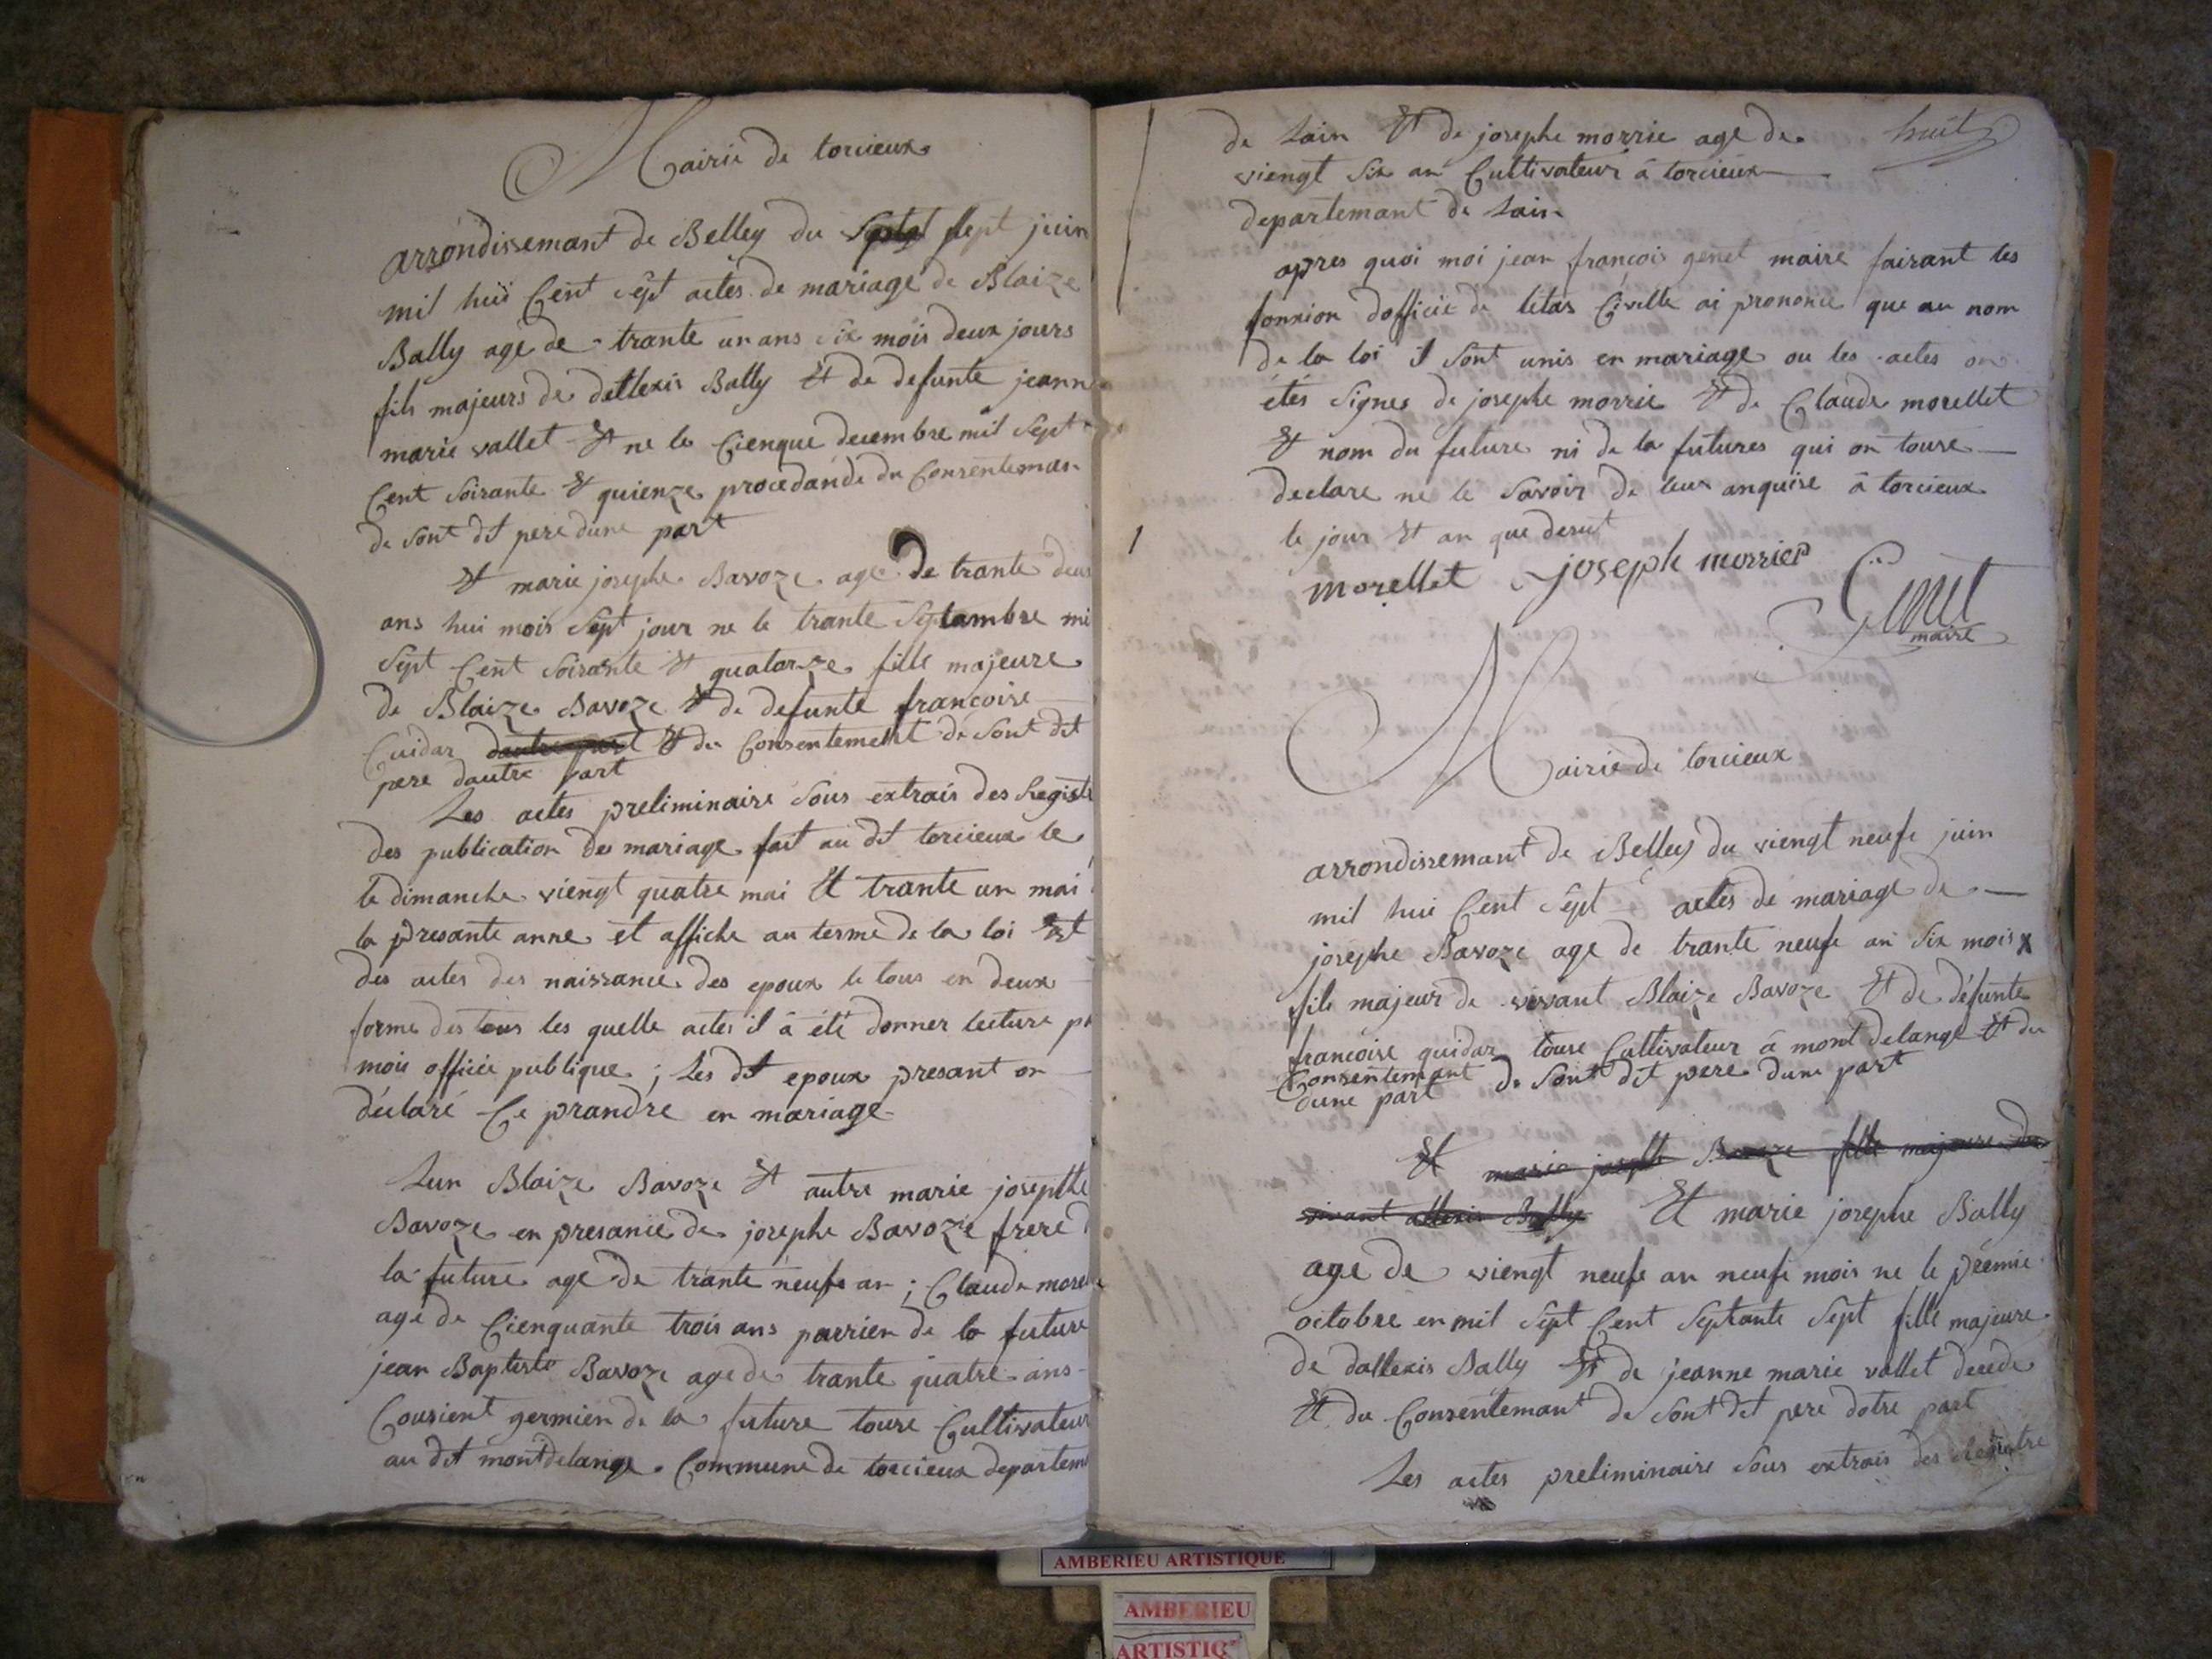 Mairie de torcieux
arrondissemant de Belley du sept juin
mil hui Cent sept actes de mariage de Blaize
Bally age de trante un ans six mois deux jours
fils majeurs de dallexis Bally Et de defunte jeann
marie vallet Et ne le Cienque decembre mil sept
Cent soixante Et quienze procedande du Consenteman
de sont dit pere dune part
Et marie josephe Bavoze age de trante deux
ans hui mois sept jour ne le trante septambre mi
sept Cent soixante Et quatorze fille majeure
de Blaize Bavoze Et de defunte francoise
Cuidar dautre part Et du Consentement de sont dit
pere dautre part
Les actes preliminaire sous extrais des Registe
des publication de mariage fait au dit torcieux le
le dimanche viengt quatre mai Et trante un mai
la presante anne et affiche au terme de la loi Et
des actes des naissance des epoux le tous en deux
forme des tous les quelle actes il à été donner lecture p
mois officie publique ; Les dit epoux presant on
déclaré Ce prandre en mariage
Lun Blaize Bavoze Et autre marie josephte
Bavoze en presance de josephe Bavoze frere d
la future age de trante neufe an ; Claude more
age de Cienquante trois ans parrien de la future
jean Baptiste Bavoze age de trante quatre ans
Cousient germien de la future touse Cultivateur
au dit montdelange Commune de torcieux departem
de Lain Et de josephe morrie age de
huit
viengt six an Cultivateur à torcieux
departemant de Lain
apres quoi moi jean francois genet maire faisant les
fonxion dofficie de letas Civille ai prononcé que au nom
de la loi il sont unis en mariage ou les actes on
étés signes de josephe morrie Et de Claude morellet
Et nom du future ni de la futures qui on touse
declare ne le savoir de leux anquise à torcieux
le jour Et an que desut
morellet joseph morrier Genet
maire
Mairie de torcieux
arrondissemant de Belley du viengt neufe juin
mil hui Cent sept actes de mariage de
josephe Bavoze age de trante neufe an six mois x
fils majeur de vivant Blaize Bavoze Et de défunte
francoise quidar touse Cultivateur à mont delange Et du
Consentemant de sont dit pere dune part
dune part
Et marie josephe Bavoze fille majeure de
vivant allexis Bally Et marie josephe Bally
age de viengt neufe an neufe mois ne le premie
octobre en mil sept Cent septante sept fille majeure
de dallexis Bally Et de jeanne marie vallet decede
Et du Consentemant de sont dit pere dotre part
Les actes preliminaire sous extrais des Registre
AMBERIEU ARTISTIQUE
AMBERIEU
ARTISTIQ